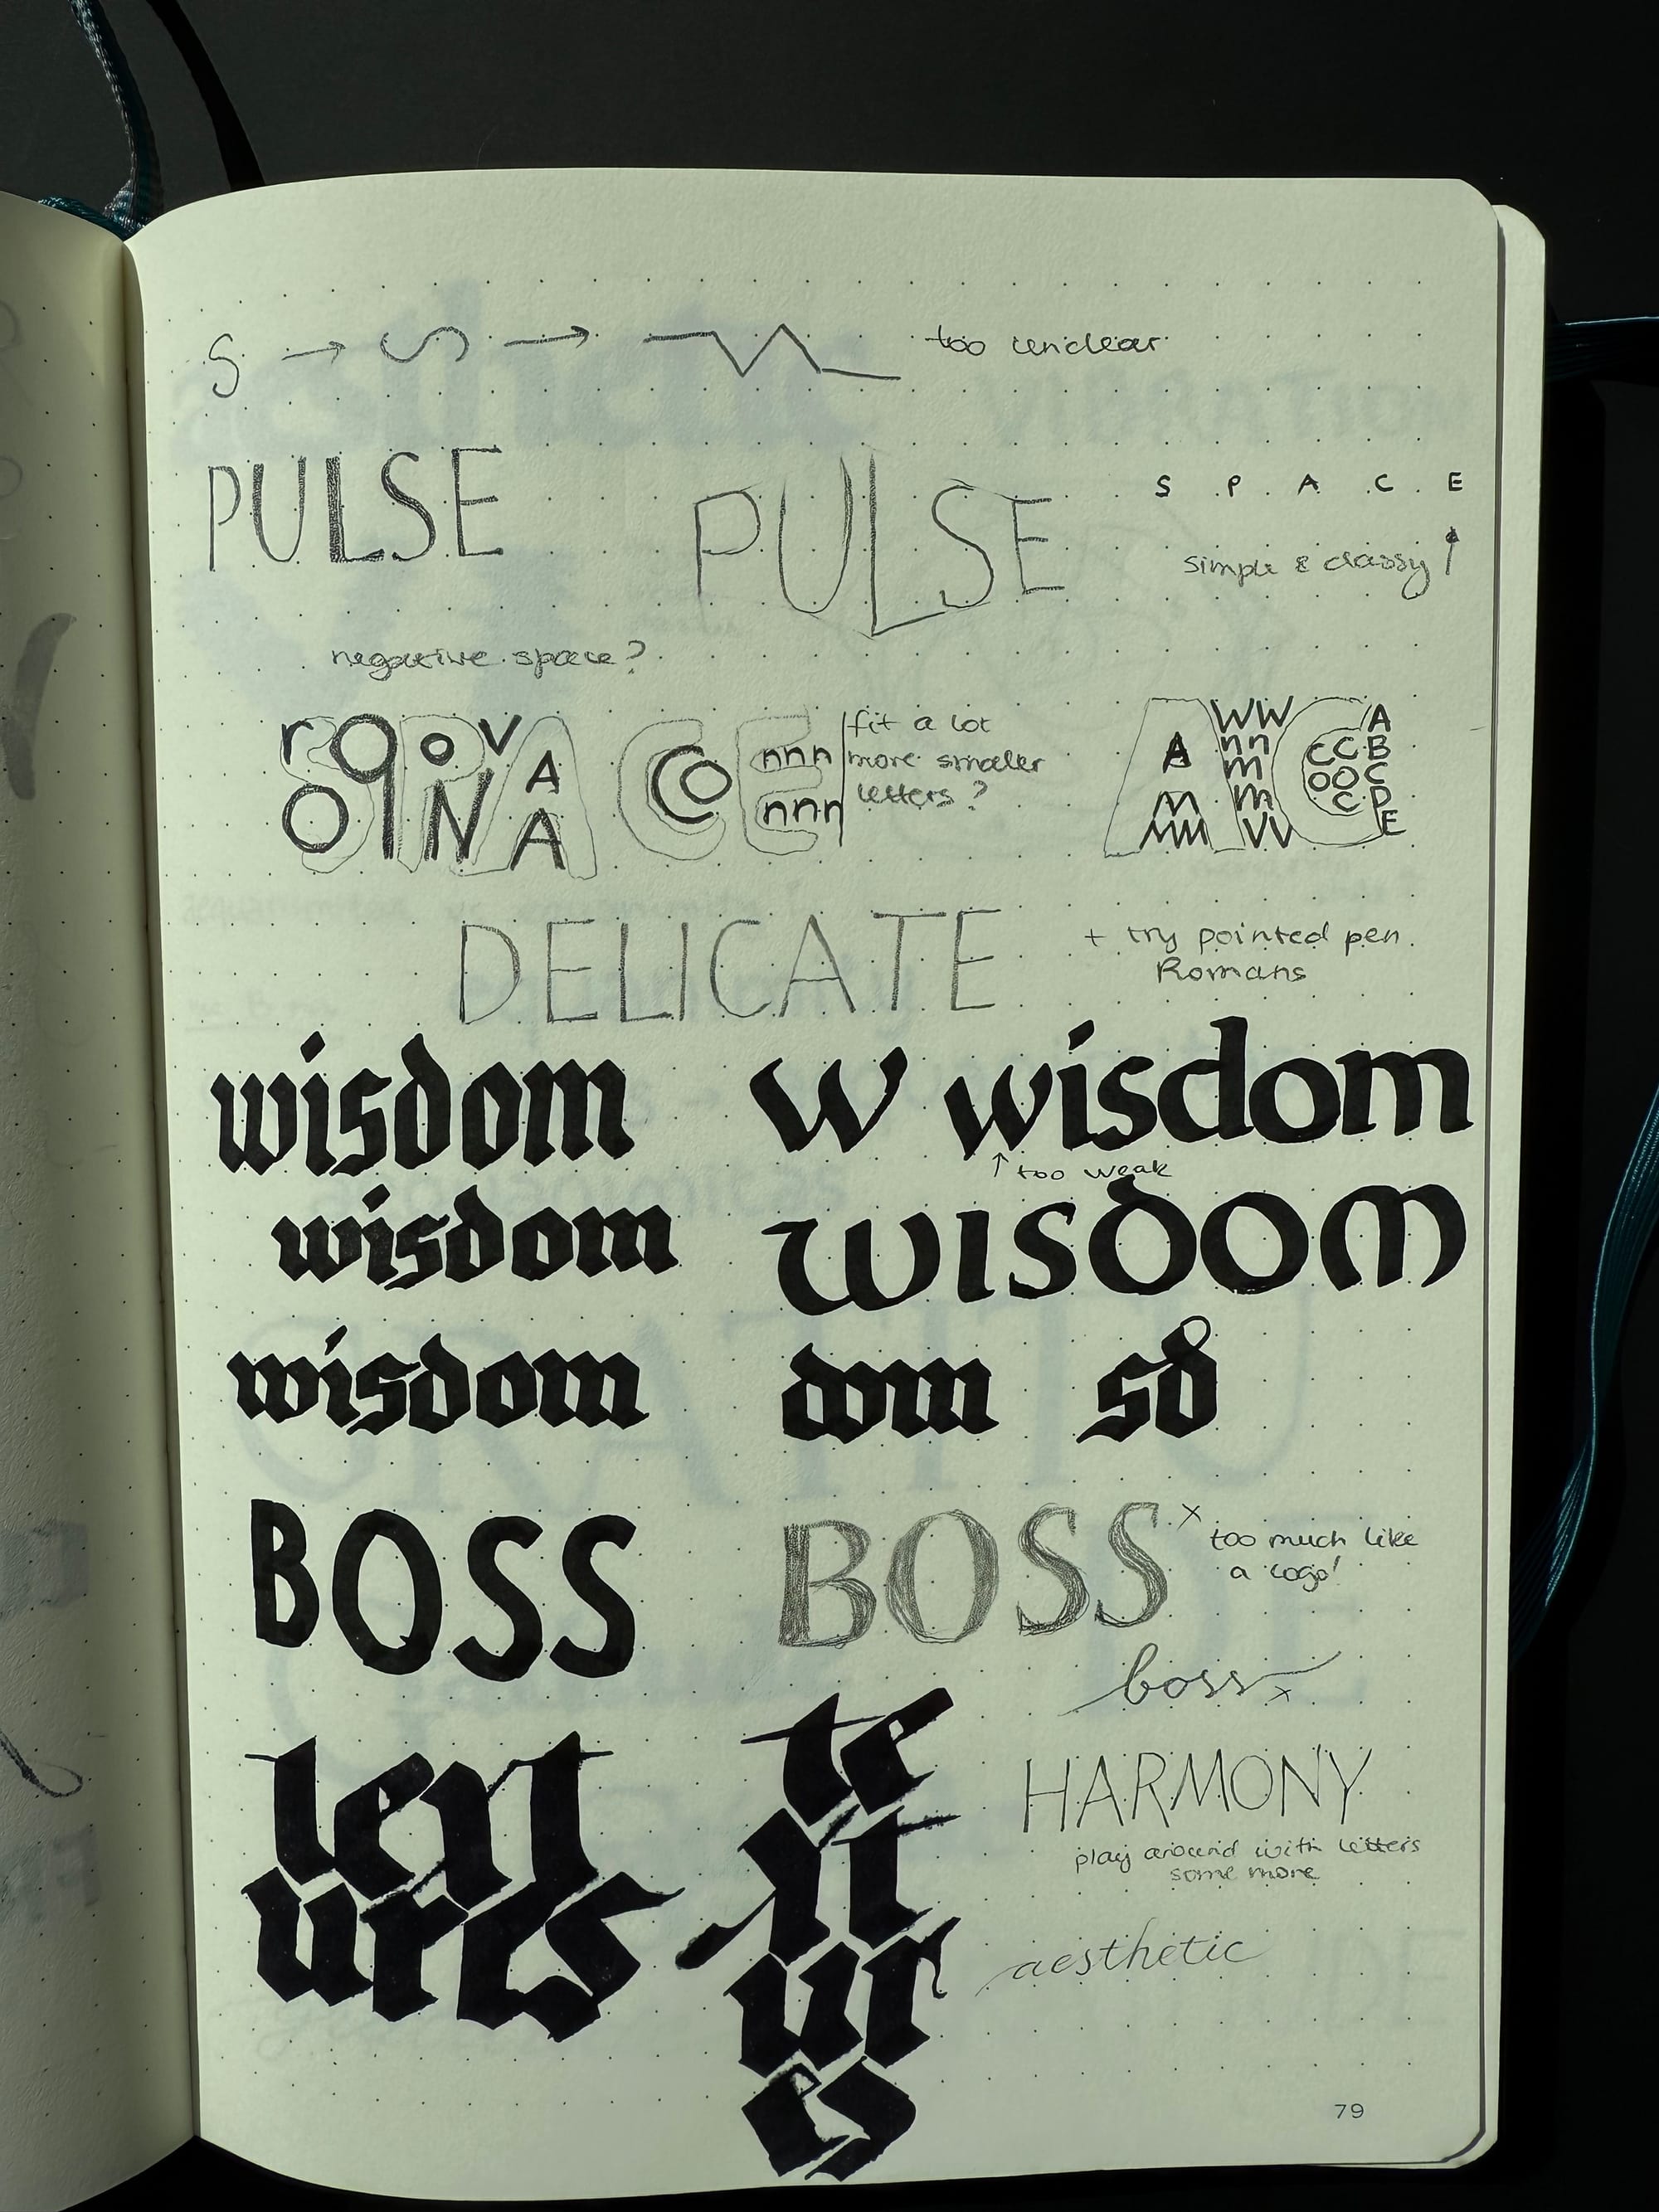 S → S → too unclear
PULSE PULSE S P A C E
simple & classy!
negative space?
SPACE
r o q o v
O I N A A
C O
nnn
nnn
fit a lot
more smaller
letters?
A C
A
M
MM
WW
nn
m
m
VV
CC
OOC
C
A
B
C
D
E
DELICATE + try pointed pen
Romans
wisdom W wisdom
↑ too weak
wisdom wisdom
wisdom dom sd
BOSS BOSS x too much like
a logo!
boss x
HARMONY
play around with letters
some more
aesthetic
79